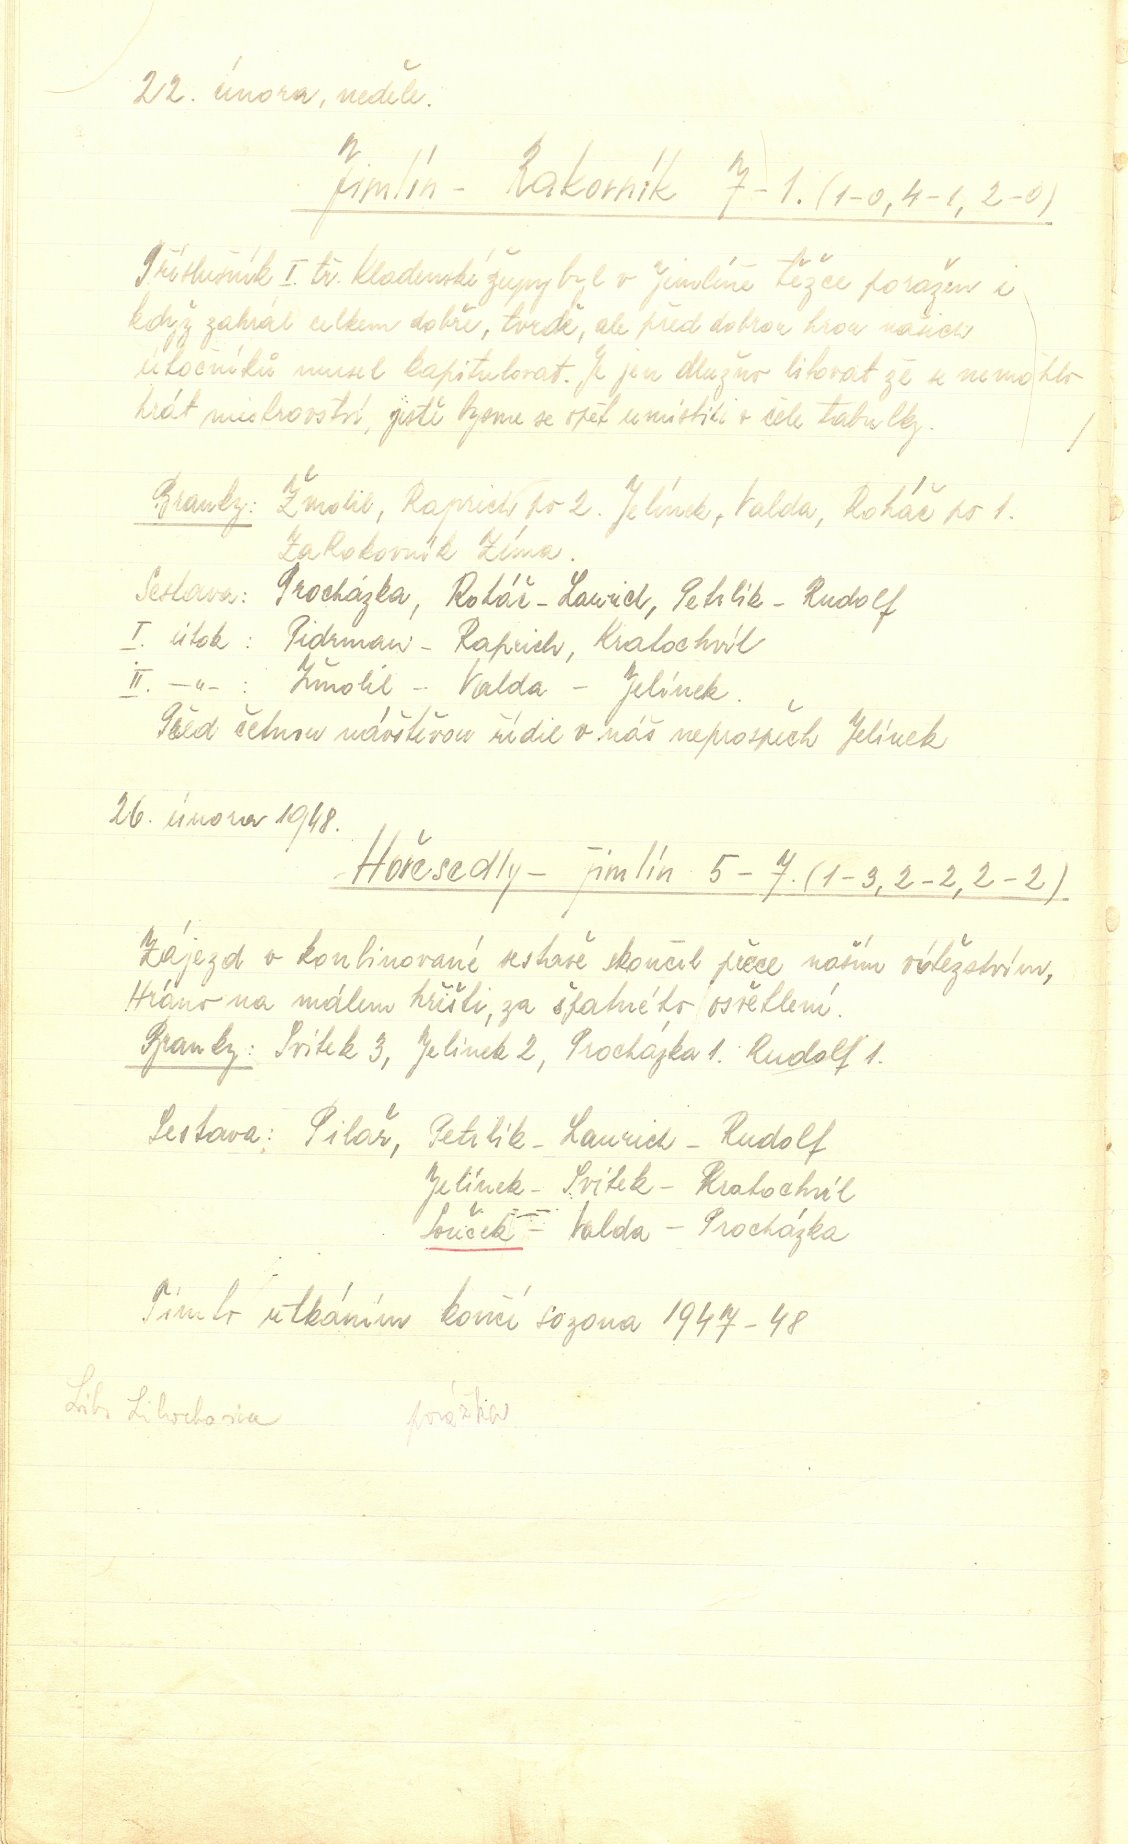 22. února, neděle.
Jimlín - Rakovník 7-1. (1-0, 4-1, 2-0)
Příslušník I. tř. Kladenské župy byl v Jimlíně těžce poražen i
když zahrál celkem dobře, tvrdě, ale před dobrou hrou našich
útočníků musel kapitulovat. Je jen dlužno litovat že se nemohlo
hrát mistrovství, jistě bysme se opět umístili v čele tabulky.
Branky: Žmolil, Raprich po 2. Jelínek, Valda, Roháč po 1.
Za Rakovník Zíma.
Sestava: Procházka, Roháč - Laurich, Petrlík - Rudolf
I. útok : Pidrman - Raprich, Kratochvíl
II. -"- : Žmolil - Valda - Jelínek.
Před četnou návštěvou řídil v náš neprospěch Jelínek
26. února 1948.
Hořesedly - Jimlín 5-7. (1-3, 2-2, 2-2)
Zájezd v konbinované sestavě skončil přece naším vítězstvím,
Hráno na málem hřišti, za špatného osvětlení.
Branky: Svítek 3, Jelínek 2, Procházka 1. Rudolf 1.
Sestava: Pilař, Petrlík - Laurich - Rudolf
Jelínek - Svítek - Kratochvíl
Souček - Valda - Procházka
Tímto utkáním končí sozona 1947-48
Libochovice porážkou